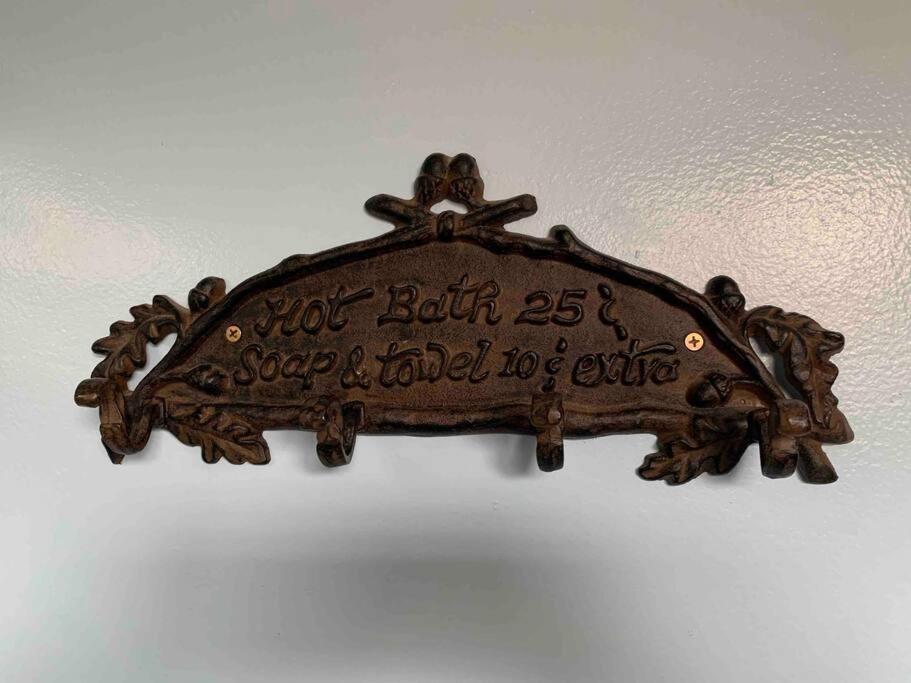 Hot Bath 25 ¢
Soap & towel 10 ¢ extra